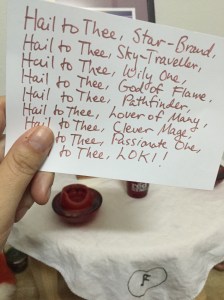 Hail to Thee, Star-Brand,
Hail to Thee, Sky-Traveler,
Hail to Thee, Wily One,
Hail to Thee, God of Flame,
Hail to Thee, Pathfinder,
Hail to Thee, Lover of Many,
Hail to Thee, Clever Mage,
to Thee, Passionate One,
to Thee, LOKI!!